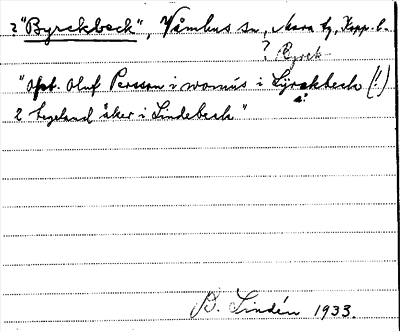 ? "Byrckbeck", Våmhus sn, Mora tg, Kopp. l.
? Byrck
"Opt. Oluf Persson i womús i Lÿrckbeck (!)
2 tegeland åker i Lindebeck"
B. Lindén 1933.